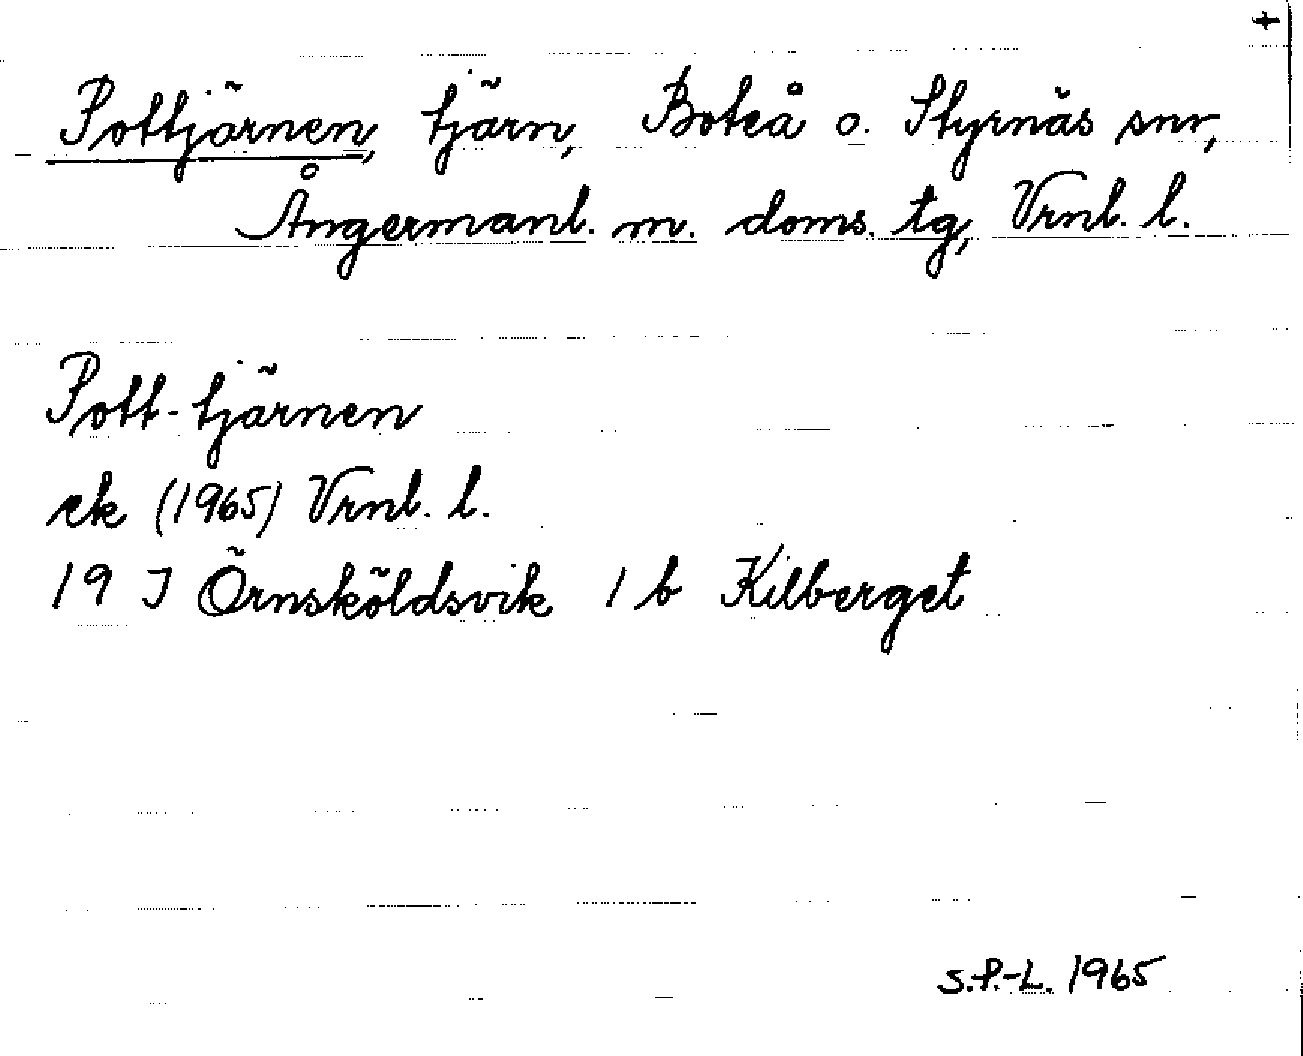 +
Pottjärnen, tjärn, Boteå o. Styrnäs snr,
Ångermanl. m. doms. tg, Vrnl. l.
Pott-tjärnen
ek (1965) Vrnl. l.
19 J Örnsköldsvik 1 b Kilberget
S.P.-L. 1965